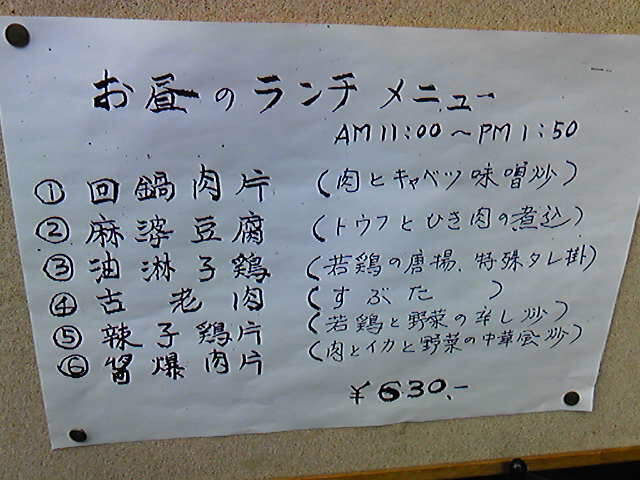 お昼のランチメニュー
AM 11:00 ～ PM 1:50
① 回鍋肉片 (肉とキャベツ味噌炒)
② 麻婆豆腐 (トウフとひき肉の煮込)
③ 油淋子鶏 (若鶏の唐揚、特殊タレ掛)
④ 古老肉 (すぶた)
⑤ 辣子鶏片 (若鶏と野菜の辛し炒)
⑥ 醤爆肉片 (肉とイカと野菜の中華風炒)
¥630.-